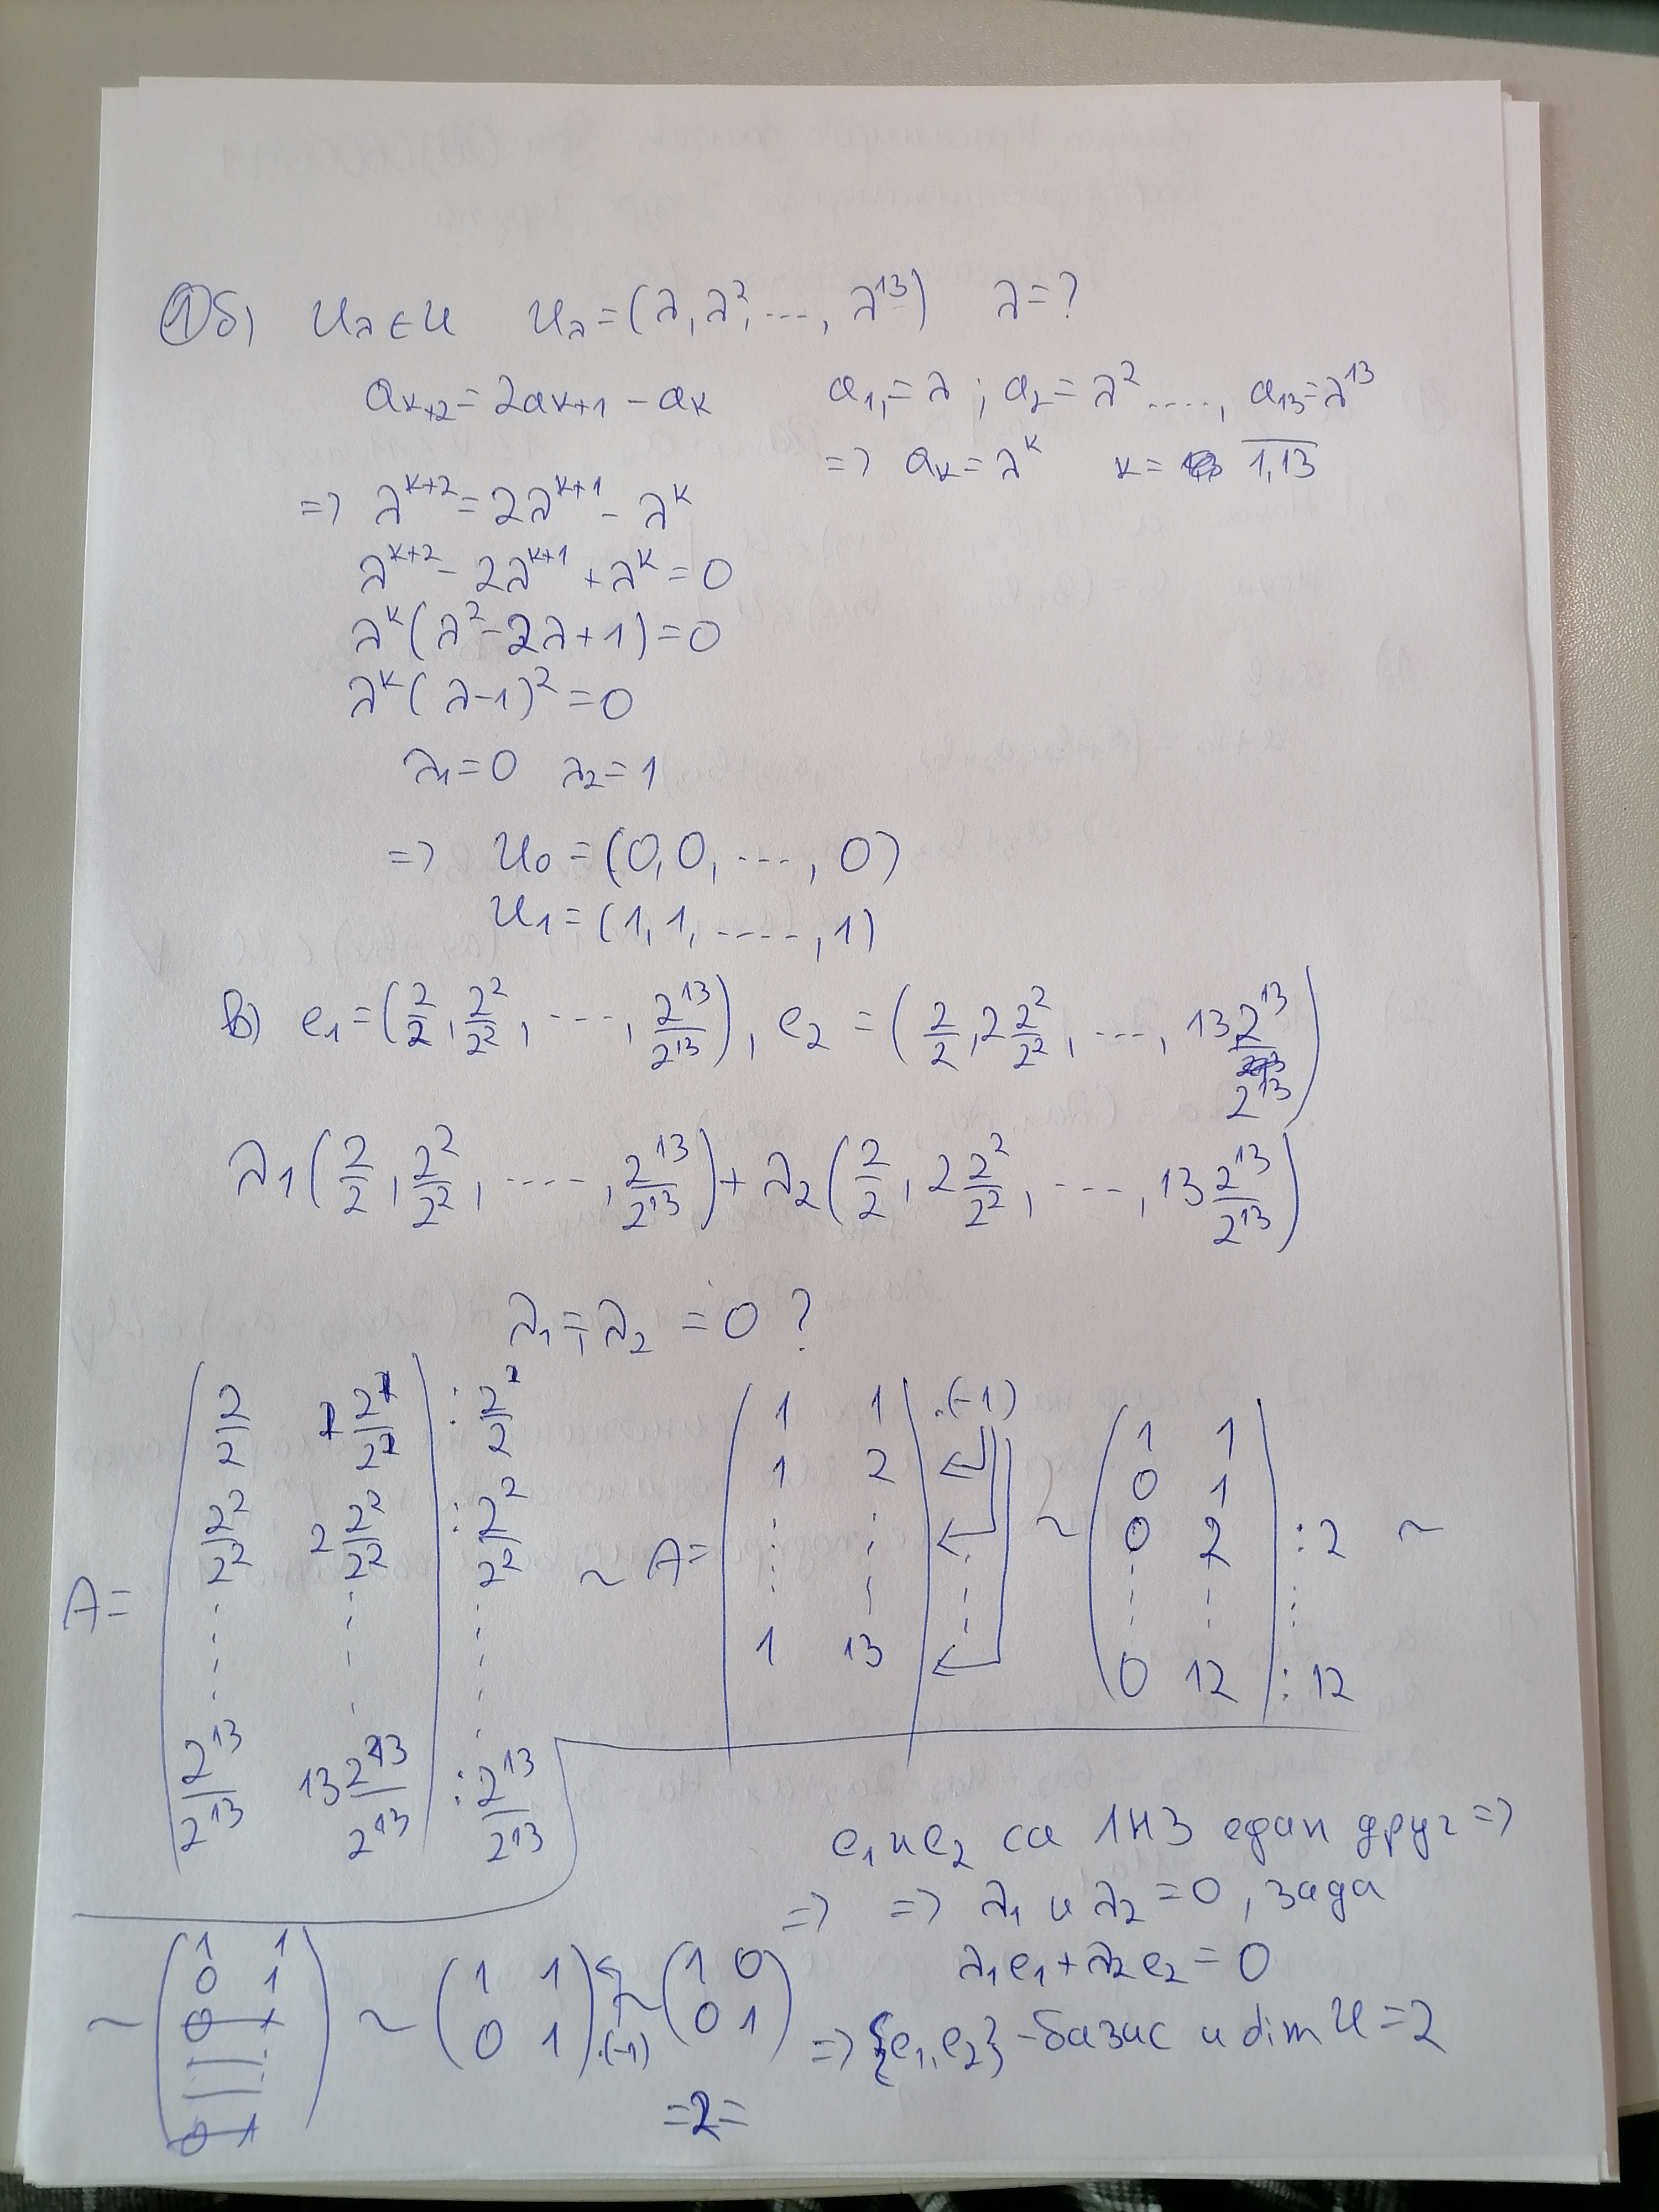 ①б) Uλ ∈ U   Uλ = (λ, λ², ..., λ¹³)   λ = ?
aₖ₊₂ = 2aₖ₊₁ - aₖ   a₁ = λ ; a₂ = λ² ...., a₁₃ = λ¹³
=> aₖ = λᵏ   k = 1,13
=> λᵏ⁺² = 2λᵏ⁺¹ - λᵏ
λᵏ⁺² - 2λᵏ⁺¹ + λᵏ = 0
λᵏ(λ² - 2λ + 1) = 0
λᵏ(λ - 1)² = 0
λ₁ = 0   λ₂ = 1
=> U₀ = (0, 0, ..., 0)
U₁ = (1, 1, ...., 1)
в) e₁ = (2/2, 2²/2², ..., 2¹³/2¹³), e₂ = (2/2, 2 2²/2², ..., 13 2¹³/2¹³)
λ₁(2/2, 2²/2², ...., 2¹³/2¹³) + λ₂(2/2, 2 2²/2², ..., 13 2¹³/2¹³)
λ₁ = λ₂ = 0 ?
A = (2/2   1 2¹/2¹ | : 2¹/2¹
2²/2²   2 2²/2² | : 2²/2²
⋮   ⋮   ⋮
2¹³/2¹³   13 2¹³/2¹³) : 2¹³/2¹³
~ A = (1 1 | .(-1)
1 2
⋮ ⋮
1 13)
~ (1 1
0 1
0 2 | : 2
⋮ ⋮   ⋮
0 12) : 12 ~
~ (1 1
0 1
0 1
0 1) ~ (1 1
0 1) .(-1) ~ (1 0
0 1)
e₁ и e₂ са ЛНЗ един друг =>
=> => λ₁ и λ₂ = 0, за да
λ₁e₁ + λ₂e₂ = 0
=> {e₁, e₂} - базис и dim U = 2
=2=